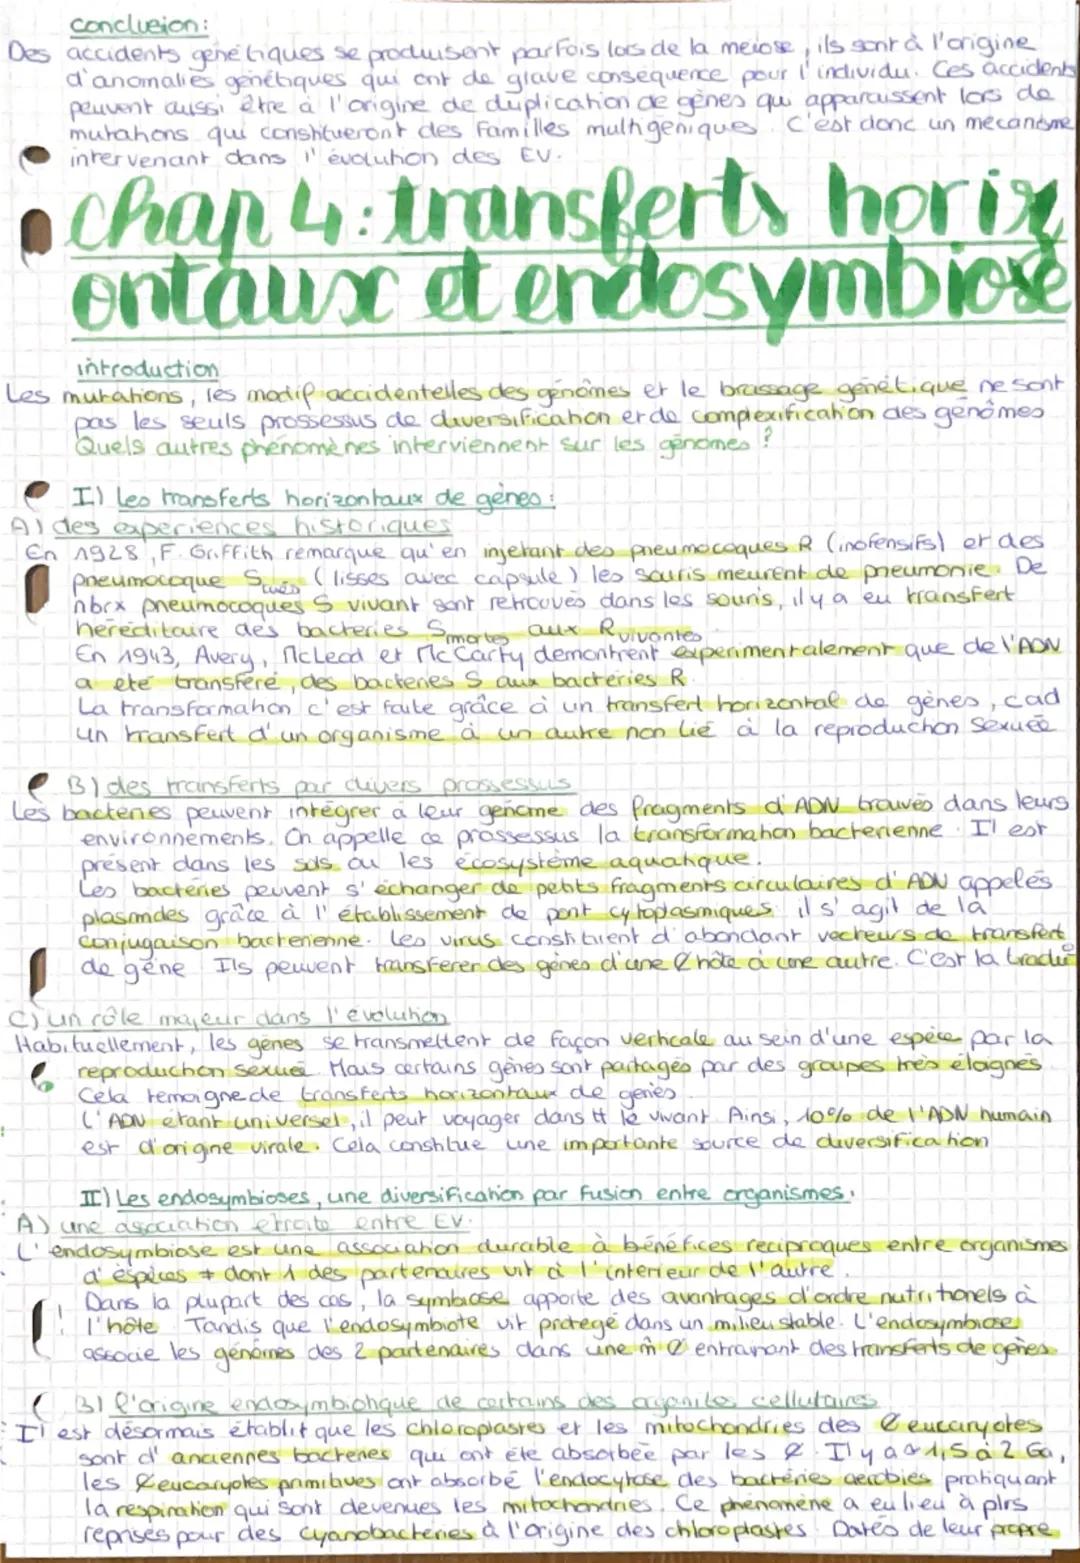 conclusion:
Des accidents génétiques se produisent parfois lors de la meiose, ils sont à l'origine
d'anomalies génétiques qui ont de grave conséquence pour l'individu. Ces accidents
peuvent aussi être à l'origine de duplication de gènes qui apparaissent lors de
mutations qui constitueront des familles multigéniques. C'est donc un mécanisme
intervenant dans l'évolution des EV.
chap 4: transferts horiz
ontaux et endosymbiose
introduction
Les mutations, les modif accidentelles des génômes et le brassage génétique ne sont
pas les seuls prossessus de diversification et de complexification des génômes
Quels autres phénomènes interviennent sur les génomes ?
I) Les transferts horizontaux de gènes :
A) des experiences historiques
En 1928, F. Griffith remarque qu'en injetant des pneumocoques R (inofensifs) et des
pneumocoque S tués (lisses avec capsule) les souris meurent de pneumonie. De
nbrx pneumocoques S vivant sont retrouvés dans les souris, il y a eu transfert
héréditaire des bacteries S mortes aux R vivantes
En 1943, Avery, McLeod et McCarty demontrent experimentalement que de l'ADN
a été transféré, des bacteries S aux bactéries R.
La transformation c'est faite grâce à un transfert horizontal de gènes, cad
un transfert d'un organisme à un autre non lié à la reproduction sexuée
B) des transferts par divers prossessus
Les bacteries peuvent intégrer à leur génome des fragments d'ADN trouvés dans leurs
environnements. On appelle ce prossessus la transformation bacterienne. Il est
présent dans les sols ou les écosystème aquatique.
Les bactéries peuvent s'échanger de petits fragments circulaires d'ADN appelés
plasmides grâce à l'établissement de pont cytoplasmiques il s'agit de la
conjugaison bacterienne. Les virus constituent d'abondant vecteurs de transfert
de gène. Ils peuvent transferer des gènes d'une ₵ hôte à une autre. C'est la
C) un rôle majeur dans l'évolution
Habituellement, les gènes se transmettent de façon verticale au sein d'une espèce par la
reproduction sexuée. Mais certains gènes sont partagés par des groupes très éloignés.
Cela temoigne de transferts horizontaux de genès.
L'ADN étant universel, il peut voyager dans tt le vivant. Ainsi, 10% de l'ADN humain
est d'origine virale. Cela constitue une importante source de diversification
II) Les endosymbioses, une diversification par fusion entre organismes.
A) une asociation etroite entre EV.
L'endosymbiose est une association durable à bénéfices reciproques entre organismes
d'espèces ≠ dont 1 des partenaires vit à l'interieur de l'autre.
Dans la plupart des cas, la symbiose apporte des avantages d'ordre nutritionels à
l'hôte. Tandis que l'endosymbiote vit protegé dans un milieu stable. L'endosymbiose
associe les génômes des 2 partenaires dans une m̂ ₵ entrainant des transferts de gènes.
B) l'origine endosymbiotique de certains des organites cellulaires
Il est désormais établit que les chloroplastes et les mitochondries des ₵ eucaryotes
sont d'anciennes bacteries qui ont été absorbée par les ₵. Il y a ≈ 1,5 à 2 Ga,
les ₵ eucaryotes primitives ont absorbé l'endocytose des bactéries aerobies pratiquant
la respiration qui sont devenues les mitochondries. Ce phénomène a eu lieu à plrs
reprises pour des cyanobacteries à l'origine des chloroplastes. Datés de leur propre